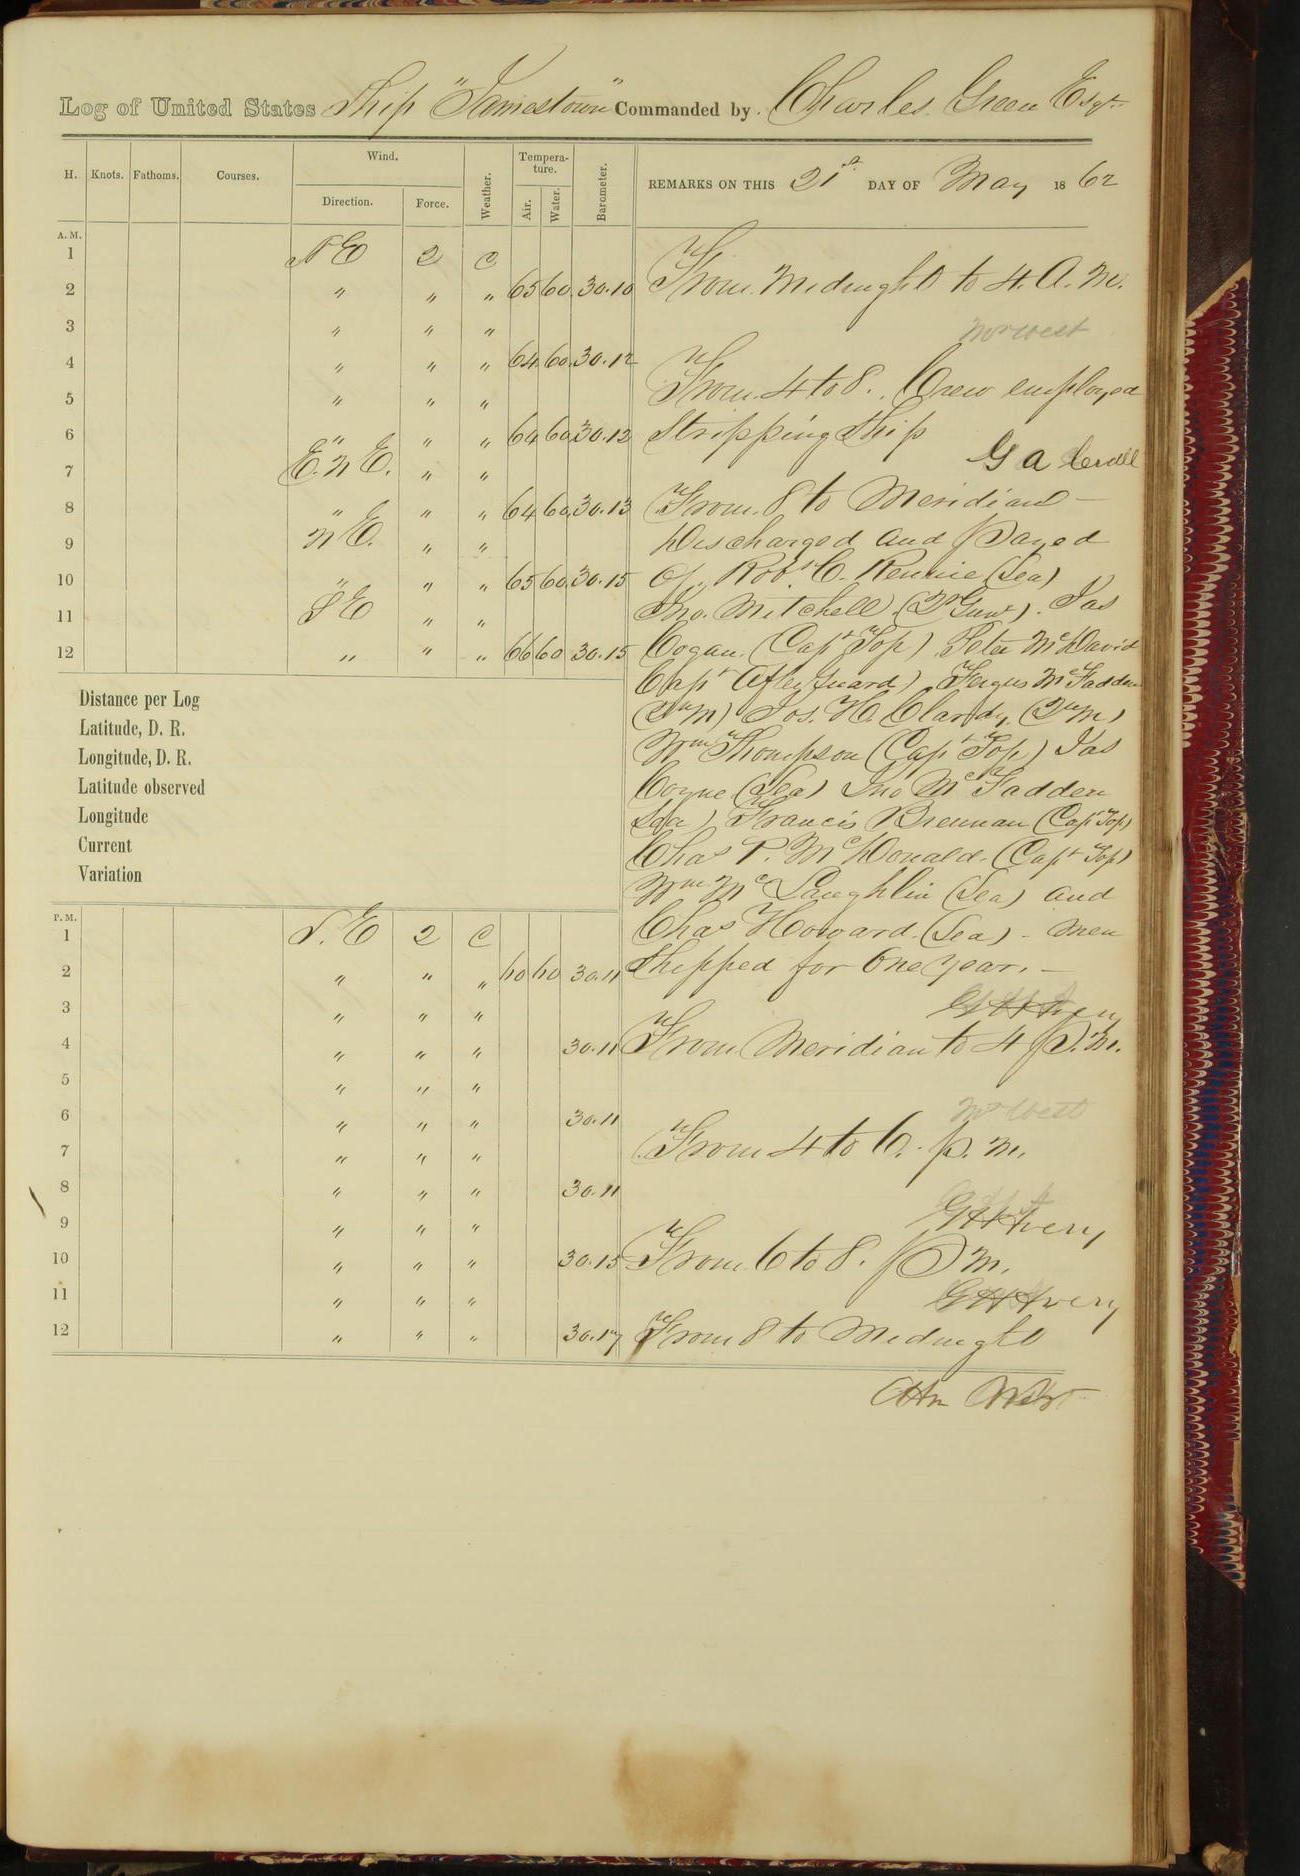 Log of United States Ship "Jamestown" Commanded by Charles Green Esqr.
H. Knots. Fathoms. Courses. Wind. Direction. Force. Weather. Temperature. Air. Water. Barometer. REMARKS ON THIS 21st DAY OF May 1862
A.M.
1 NE 2 c
2 " " " 65 60 30.10 From Midnight to 4. A. M.
3 " " "
Mr West
4 " " " 64 60 30.12
5 " " " From 4 to 8. Crew employed
6 " " " 64 60 30.12 Stripping Ship
7 E.N E. " "
8 " " " 64 60 30.13 From 8 to Meridian —
9 N E. " " Discharged and Payed
10 " " " 65 60 30.15 Of, Robt C. Rennie (Sea)
11 S E " " Jno. Mitchell (Qr Gunr). Jas
12 " " " 66 60 30.15 Cogan (Capt Top) Peter McDavid
Capt Afterguard) Fergus McFadden
(Qr M) Jos. H. Clardy, (Qr M)
Distance per Log
Latitude, D. R.
Longitude, D. R.
Latitude observed
Longitude
Current
Variation
Wm Thompson (Capt Top) Jas
Coyne (Sea) Jno McFadden
Sea) Francis Brennan (Capt Top)
Chas P. McDonald. (Capt Top)
Wm McLaughlin (Sea) and
Chas Howard. (Sea) - men
Shipped for One year. —
P.M.
1 S. E 2 c
2 " " " 60 60 30.11
3 " " "
G H Avery
4 " " " 30.11 From Meridian to 4 P. M.
5 " " "
Mr West
6 " " " 30.11
7 " " " From 4 to 6. p. m.
8 " " " 30.11
G H Avery
9 " " "
10 " " " 30.15 From 6 to 8. P M.
11 " " "
G H Avery
12 " " " 30.17 From 8 to Midnight
West